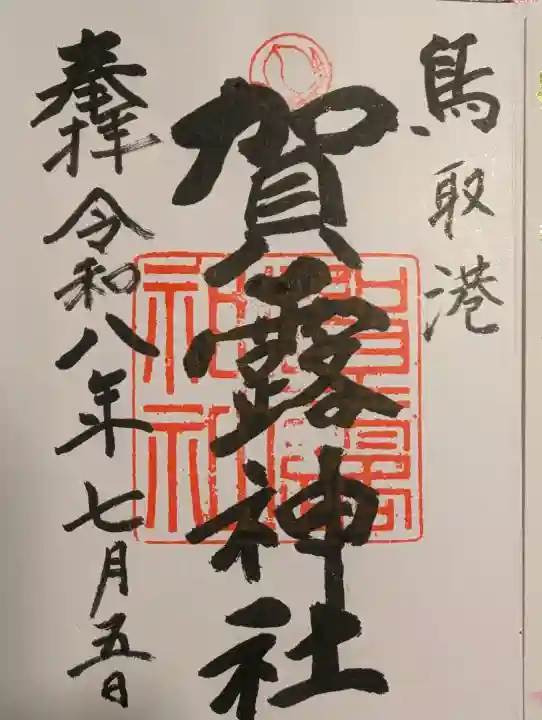 鳥取港
賀露神社
奉拝 令和八年七月五日